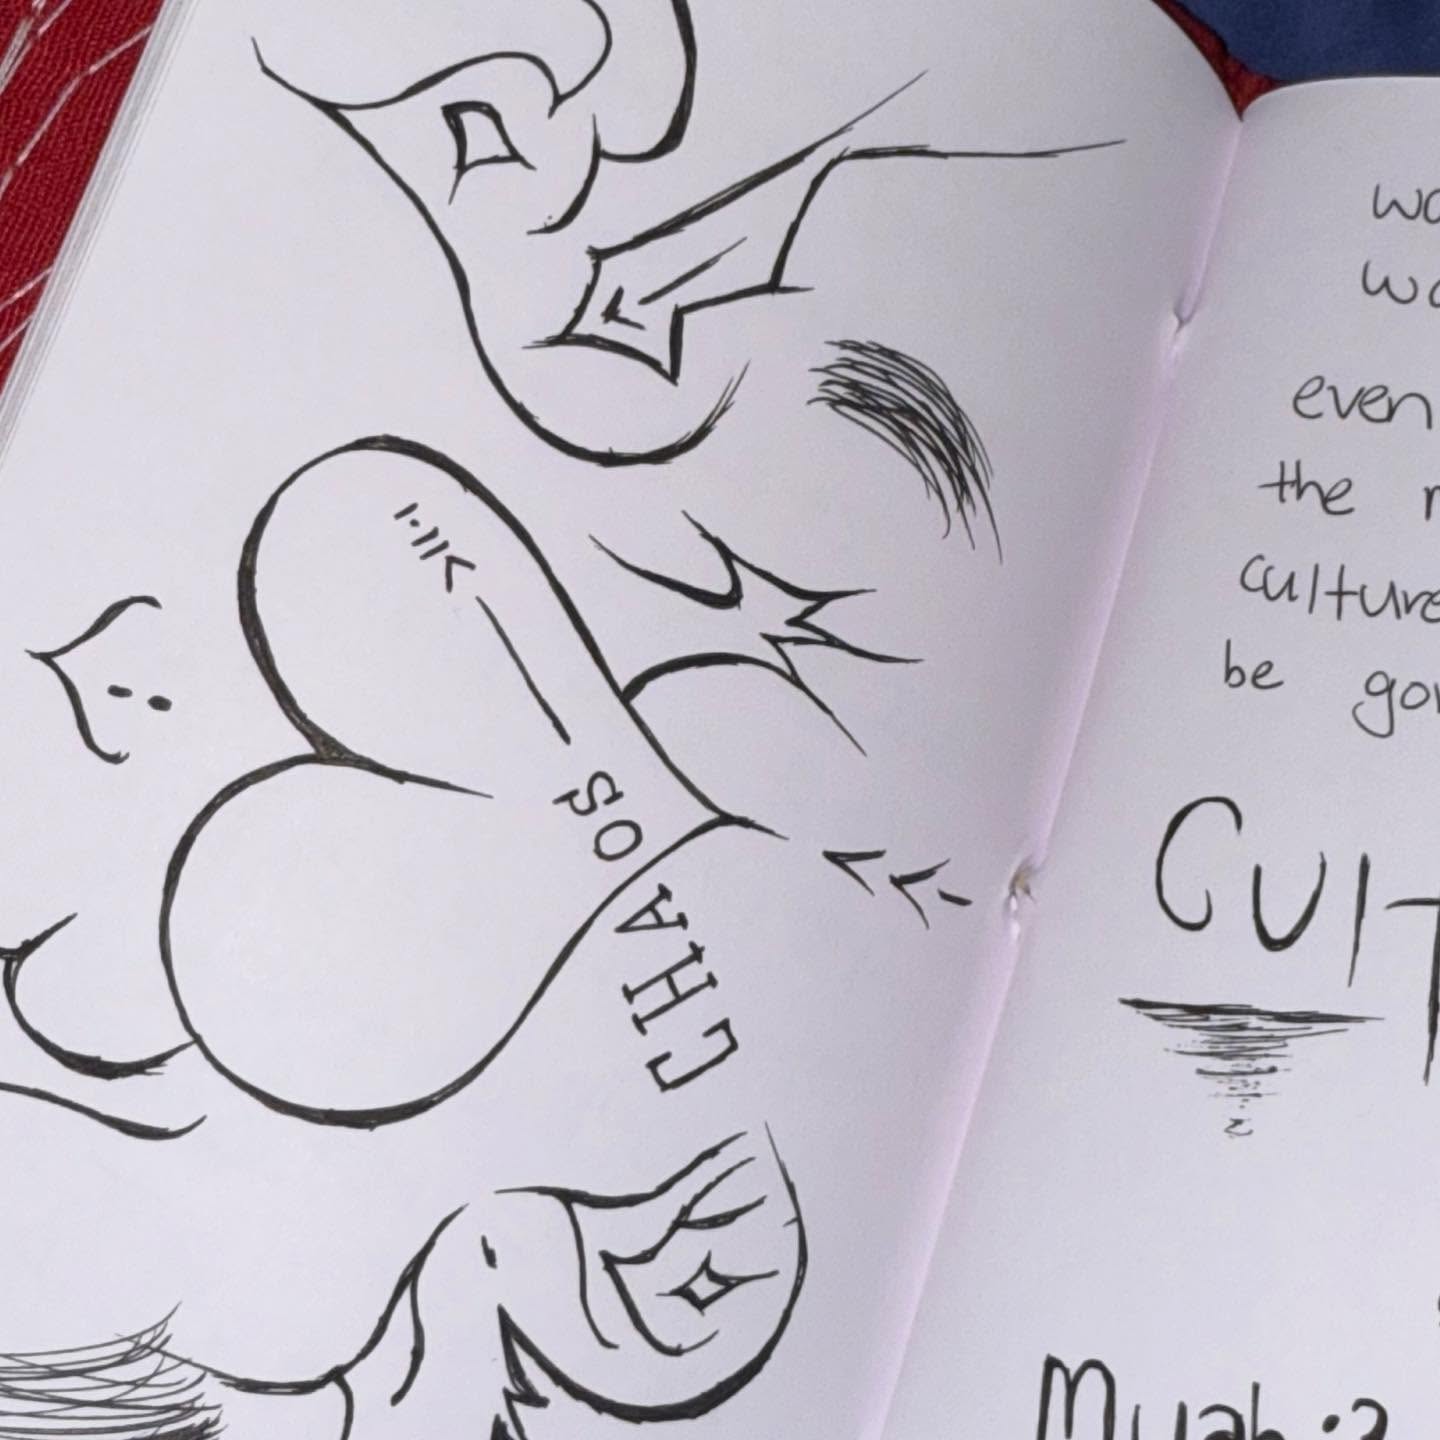 CHAOS
wo
wo
even
the
culture
be
CULT
Muah :3